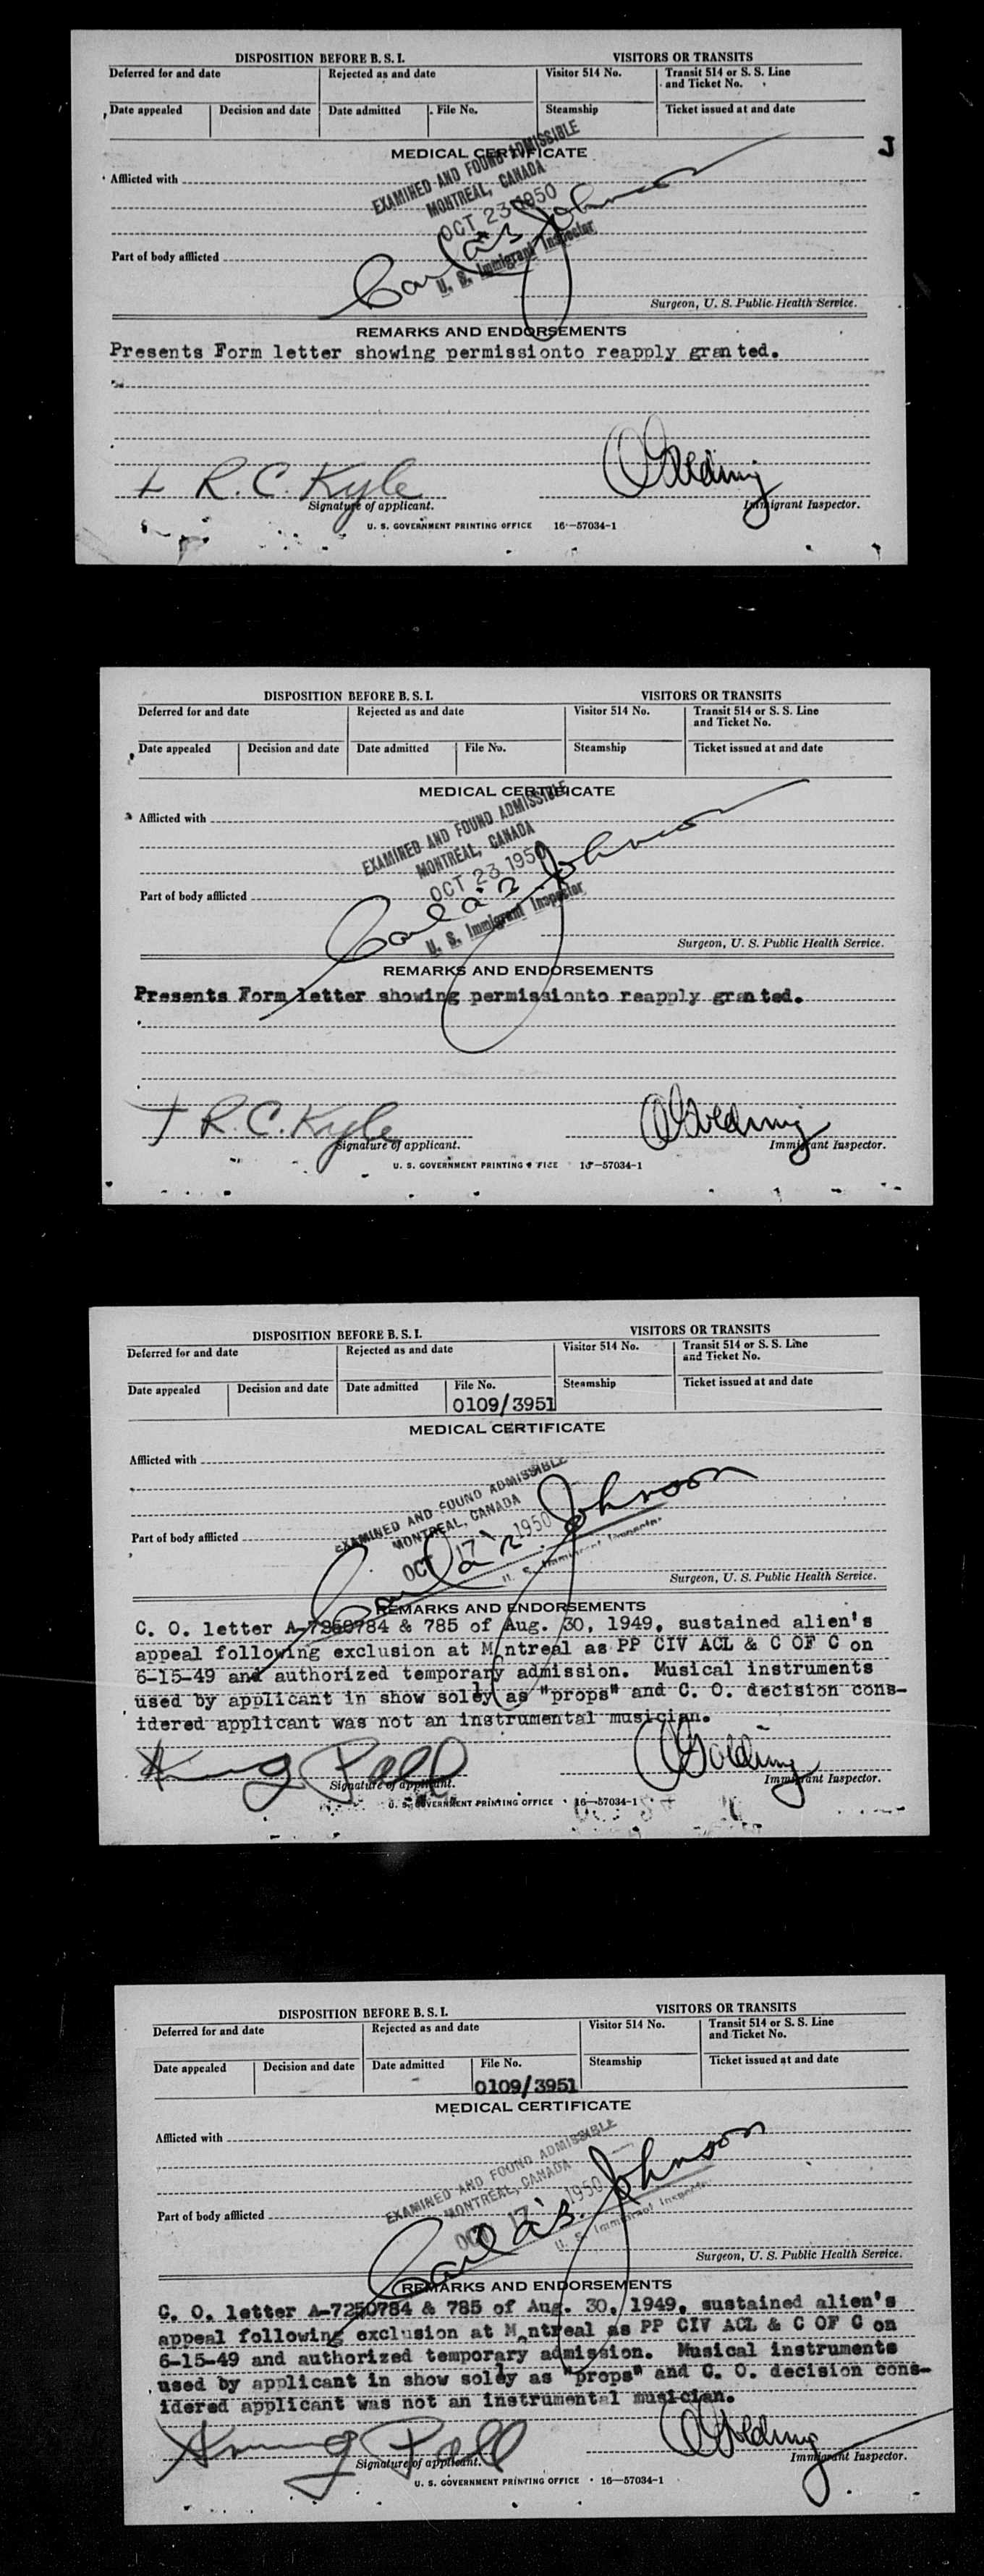 DISPOSITION BEFORE B. S. I.
VISITORS OR TRANSITS
Deferred for and date
Rejected as and date
Visitor 514 No.
Transit 514 or S. S. Line
and Ticket No.
Date appealed
Decision and date
Date admitted
File No.
Steamship
Ticket issued at and date
J
MEDICAL CERTIFICATE
Afflicted with
EXAMINED AND FOUND ADMISSIBLE
MONTREAL, CANADA
OCT 23 1950
U. S. Immigrant Inspector
Johnson
Part of body afflicted
Surgeon, U. S. Public Health Service.
REMARKS AND ENDORSEMENTS
Presents Form letter showing permissionto reapply granted.
+ R. C. Kyle
Golding
Signature of applicant.
Immigrant Inspector.
U. S. GOVERNMENT PRINTING OFFICE 16—57034-1
DISPOSITION BEFORE B. S. I.
VISITORS OR TRANSITS
Deferred for and date
Rejected as and date
Visitor 514 No.
Transit 514 or S. S. Line
and Ticket No.
Date appealed
Decision and date
Date admitted
File No.
Steamship
Ticket issued at and date
MEDICAL CERTIFICATE
Afflicted with
EXAMINED AND FOUND ADMISSIBLE
MONTREAL, CANADA
OCT 23 1950
U. S. Immigrant Inspector
Johnson
Part of body afflicted
Surgeon, U. S. Public Health Service.
REMARKS AND ENDORSEMENTS
Presents Form letter showing permissionto reapply granted.
+ R. C. Kyle
Golding
Signature of applicant.
Immigrant Inspector.
U. S. GOVERNMENT PRINTING OFFICE 16—57034-1
DISPOSITION BEFORE B. S. I.
VISITORS OR TRANSITS
Deferred for and date
Rejected as and date
Visitor 514 No.
Transit 514 or S. S. Line
and Ticket No.
Date appealed
Decision and date
Date admitted
File No.
Steamship
Ticket issued at and date
0109/3951
MEDICAL CERTIFICATE
Afflicted with
EXAMINED AND FOUND ADMISSIBLE
MONTREAL, CANADA
OCT 17 1950
U. S. Immigrant Inspector
Johnson
Part of body afflicted
Surgeon, U. S. Public Health Service.
REMARKS AND ENDORSEMENTS
C. O. letter A-7250784 & 785 of Aug. 30, 1949, sustained alien's
appeal following exclusion at Montreal as PP CIV ACL & C OF C on
6-15-49 and authorized temporary admission. Musical instruments
used by applicant in show soley as "props" and C. O. decision cons-
idered applicant was not an instrumental musician.
Golding
Signature of applicant.
Immigrant Inspector.
U. S. GOVERNMENT PRINTING OFFICE 16—57034-1
DISPOSITION BEFORE B. S. I.
VISITORS OR TRANSITS
Deferred for and date
Rejected as and date
Visitor 514 No.
Transit 514 or S. S. Line
and Ticket No.
Date appealed
Decision and date
Date admitted
File No.
Steamship
Ticket issued at and date
0109/3951
MEDICAL CERTIFICATE
Afflicted with
EXAMINED AND FOUND ADMISSIBLE
MONTREAL, CANADA
OCT 17 1950
U. S. Immigrant Inspector
Johnson
Part of body afflicted
Surgeon, U. S. Public Health Service.
REMARKS AND ENDORSEMENTS
C. O. letter A-7250784 & 785 of Aug. 30, 1949, sustained alien's
appeal following exclusion at Montreal as PP CIV ACL & C OF C on
6-15-49 and authorized temporary admission. Musical instruments
used by applicant in show soley as "props" and C. O. decision cons-
idered applicant was not an instrumental musician.
Golding
Signature of applicant.
Immigrant Inspector.
U. S. GOVERNMENT PRINTING OFFICE 16—57034-1